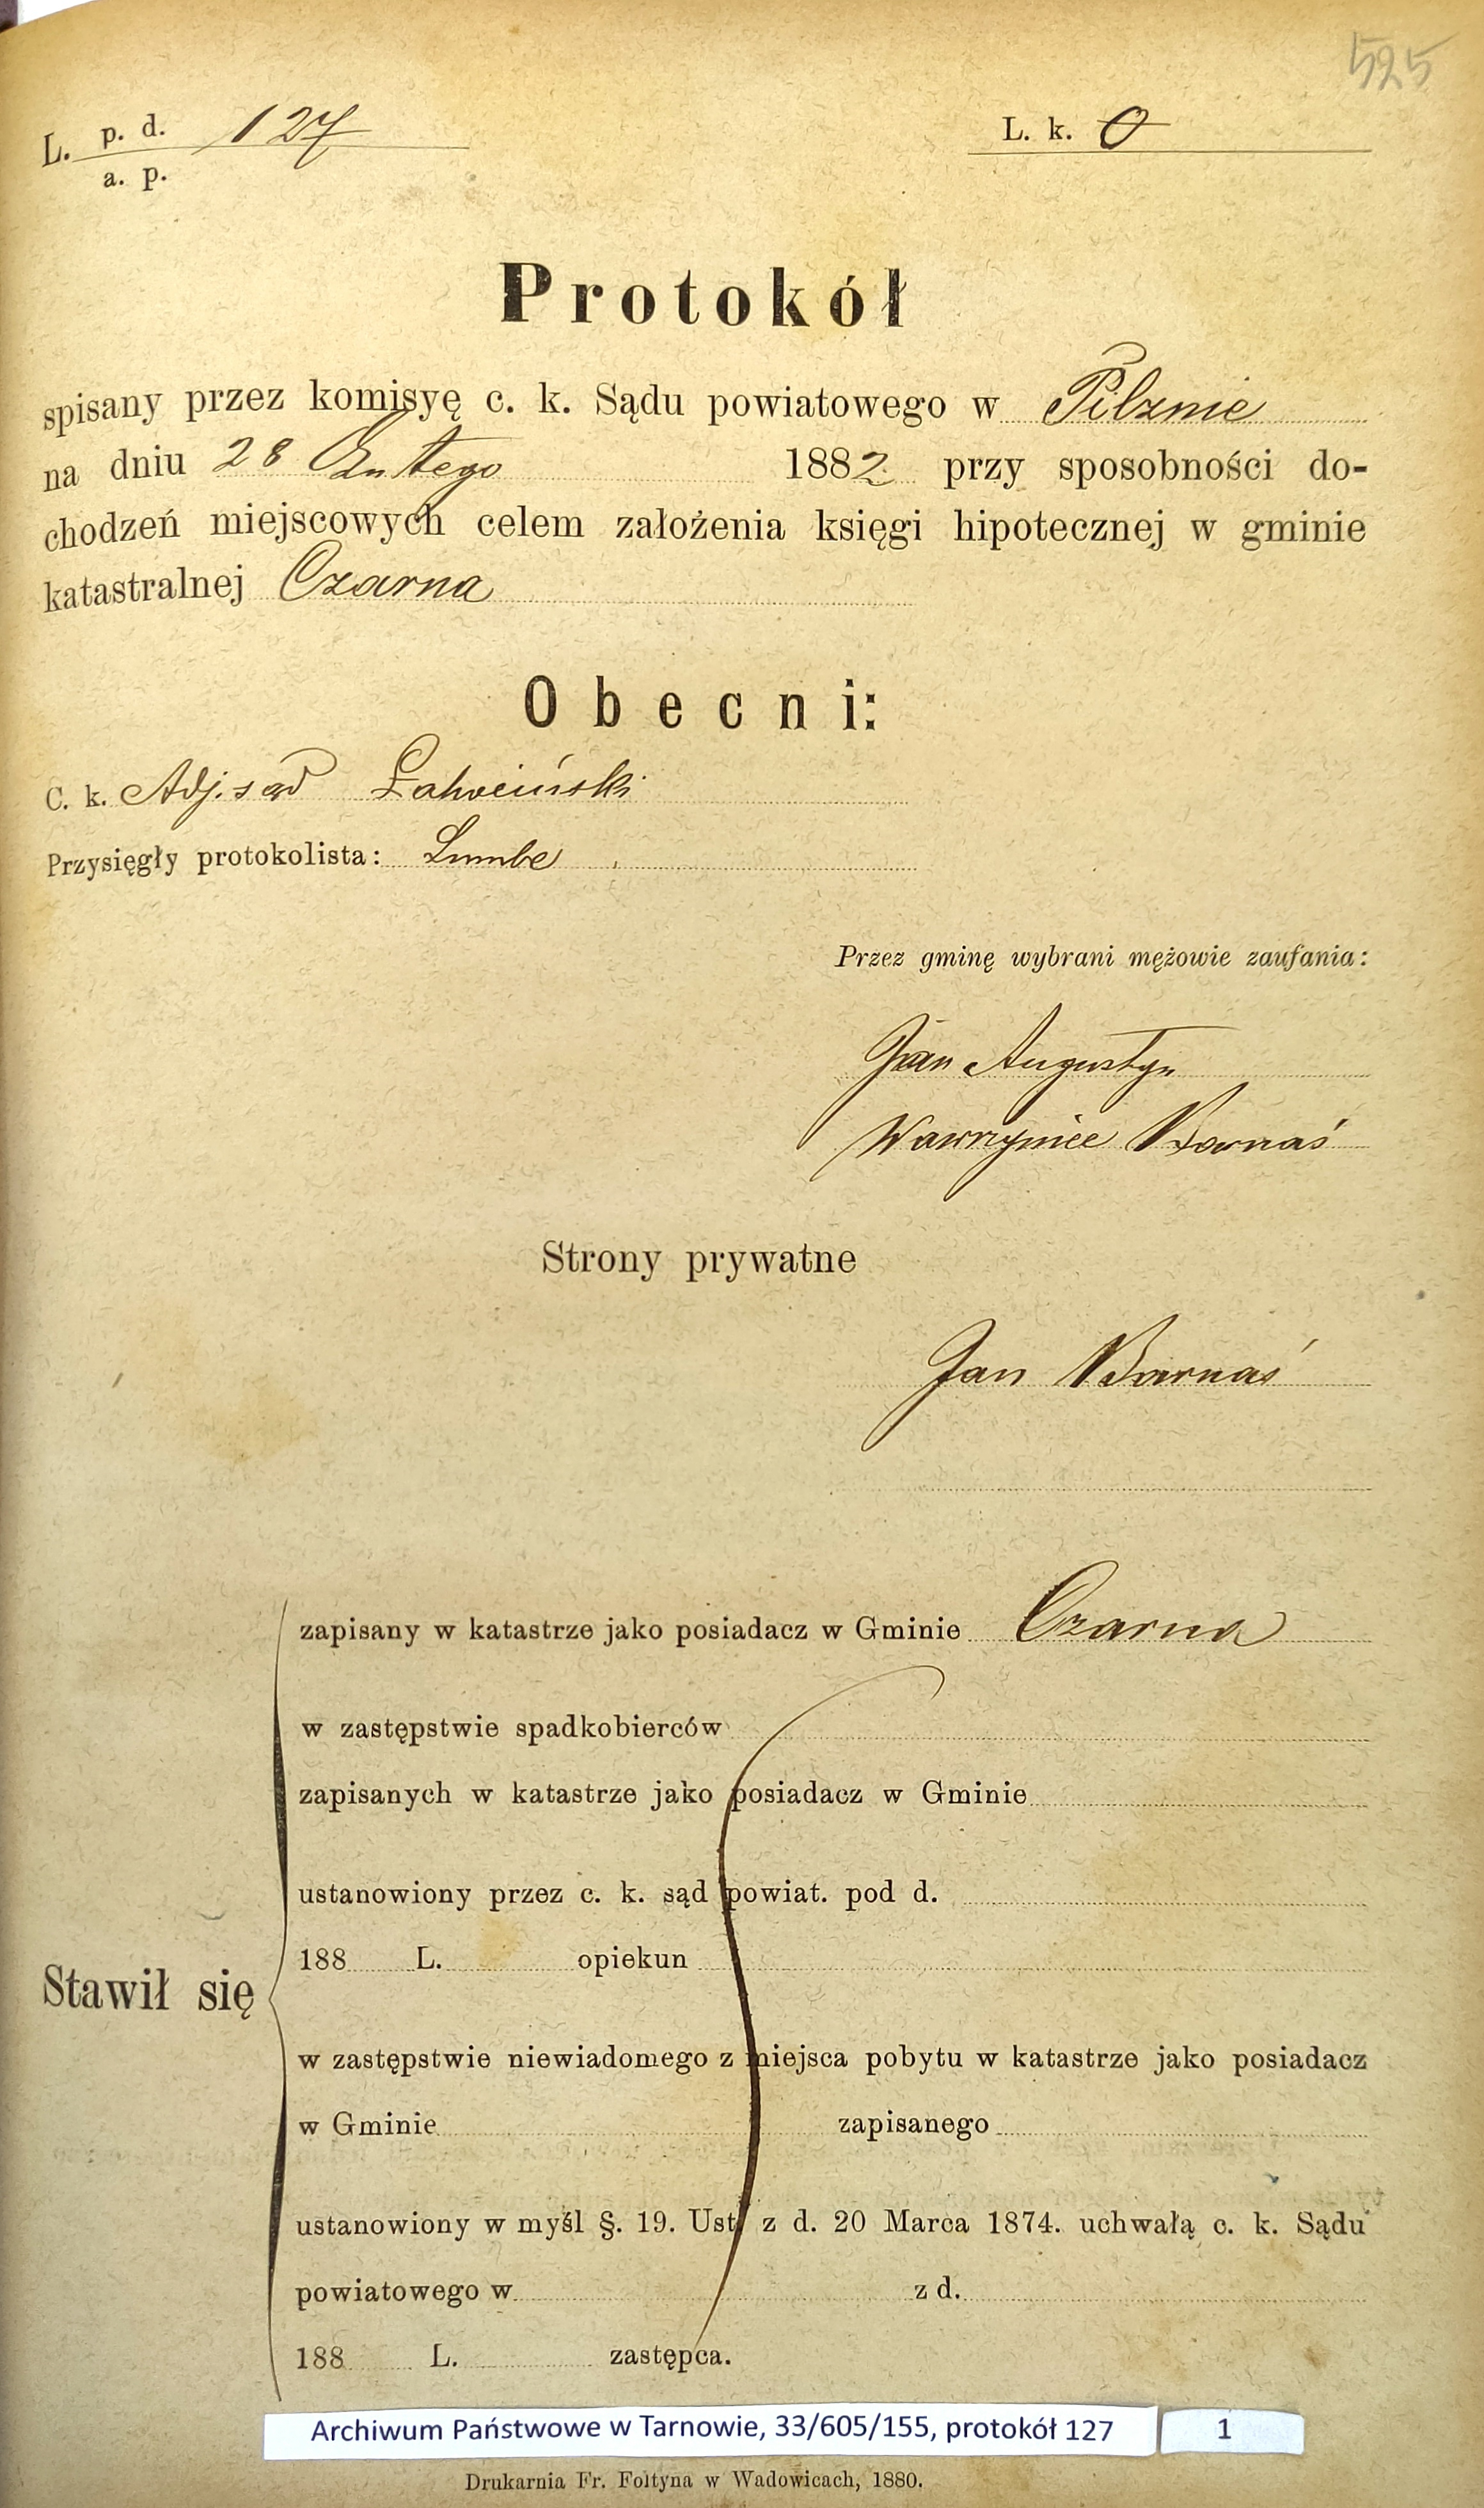 525
L. p. d. 127
a. p.
L. k. 0
Protokół
spisany przez komisyę c. k. Sądu powiatowego w Pilznie
na dniu 28 Lutego 1882 przy sposobności do-
chodzeń miejscowych celem założenia księgi hipotecznej w gminie
katastralnej Czarna
Obecni:
C. k. Adj. sąd
Przysięgły protokolista:
Przez gminę wybrani mężowie zaufania:
Jan Augustyn
Wawrzyniec Barnaś
Strony prywatne
Jan Barnaś
zapisany w katastrze jako posiadacz w Gminie Czarna
w zastępstwie spadkobierców
zapisanych w katastrze jako posiadacz w Gminie
ustanowiony przez c. k. sąd powiat. pod d.
188 L. opiekun
Stawił się
w zastępstwie niewiadomego z miejsca pobytu w katastrze jako posiadacz
w Gminie zapisanego
ustanowiony w myśl §. 19. Ust. z d. 20 Marca 1874. uchwałą c. k. Sądu
powiatowego w z d.
188 L. zastępca.
Archiwum Państwowe w Tarnowie, 33/605/155, protokół 127 1
Drukarnia Fr. Foltyna w Wadowicach, 1880.